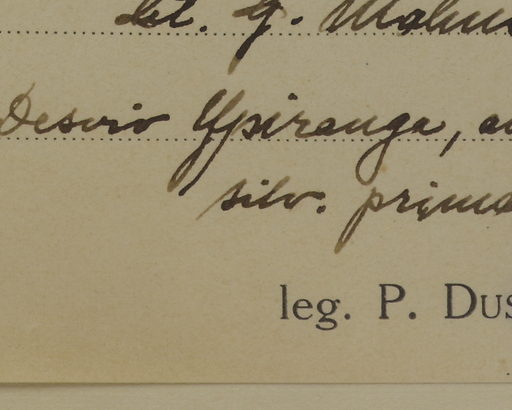 Det. G. Malm
Desvio Ypiranga, a
silv. prima
leg. P. Dus